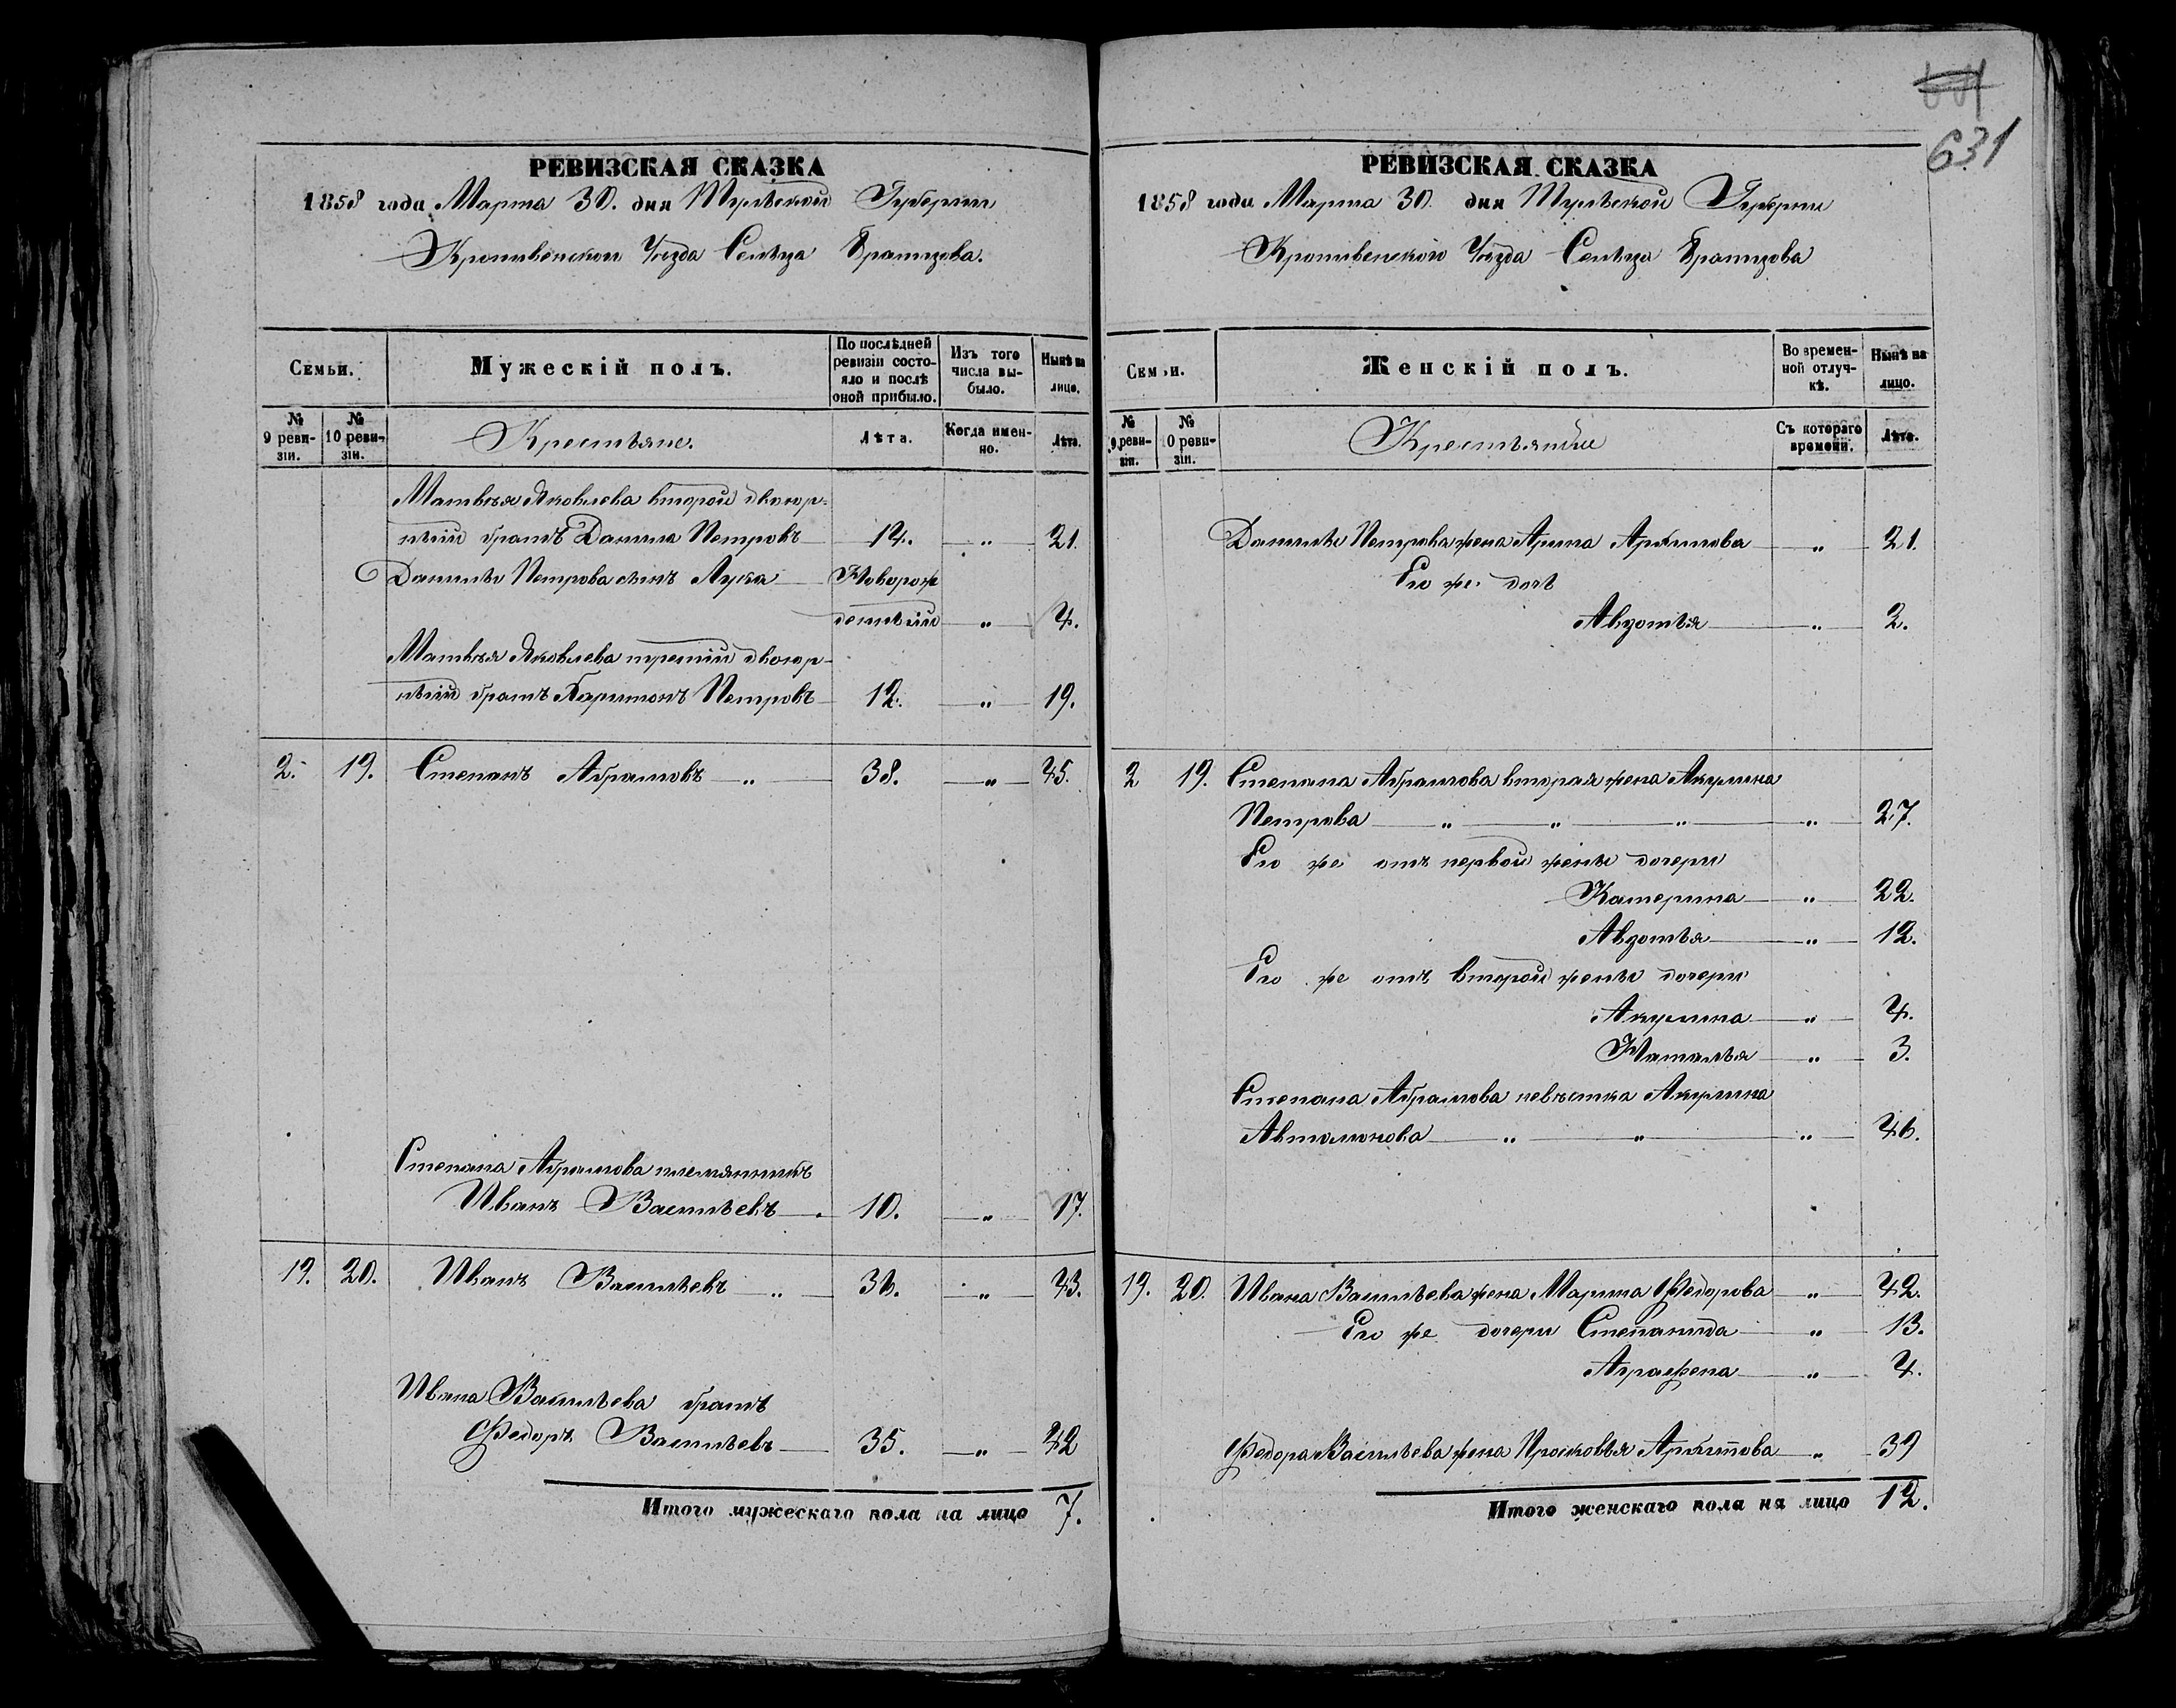 631
РЕВИЗСКАЯ СКАЗКА
1858 года Марта 30. дня Тульской Губернии
Крапивенского Уѣзда Сельца
Семьи.
Мужескій полъ.
По послѣдней ревизіи состояло и послѣ оной прибыло.
Изъ того числа выбыло.
Нынѣ на лицо.
№ 9 ревизіи.
№ 10 ревизіи.
Крестьяне.
Лѣта.
Когда именно.
Лѣта.
Матвѣя Яковлева второй двоюр-
ный братъ Данила Петровъ 14. " 21.
Данилы Петрова сынъ Лука Новорож
денный " 4.
Матвѣя Яковлева третій двоюр-
ный братъ Харитонъ Петровъ 12. " 19.
2. 19. Степанъ Абрамовъ " 38. " 45.
Степана Абрамова племянникъ
Иванъ Васильевъ 10. " 17.
19. 20. Иванъ Васильевъ " 36. " 43.
Ивана Васильева братъ
Федоръ Васильевъ 35. " 42
Итого мужескаго пола на лицо 7.
РЕВИЗСКАЯ СКАЗКА
1858 года Марта 30. дня Тульской Губернии
Крапивенского Уѣзда Сельца
Семьи.
Женскій полъ.
Во временной отлучкѣ.
Нынѣ на лицо.
№ 9 ревизіи.
№ 10 ревизіи.
Съ котораго времени.
Лѣта.
Данилы Петрова жена Арина " 21.
Его же дочь
Авдотья " 2.
2 19. Степана Абрамова вторая жена Акулина
Петрова " " " " 27.
Его же отъ первой жены дочери
Катерина " 22.
Авдотья " 12.
Его же отъ второй жены дочери
Акулина " 4.
Наталья " 3.
Степана Абрамова невѣстка Акулина
Автомонова " " " 46.
19. 20. Ивана Васильева жена Марина Федорова " 42.
Его же дочери Степанида " 13.
Аграфена " 4.
Федора Васильева жена Прасковья " 39
Итого женскаго пола на лицо 12.